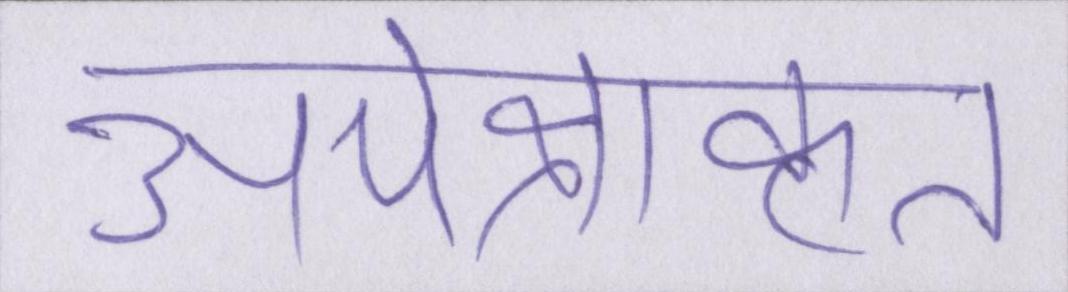 अपेक्षाकृत